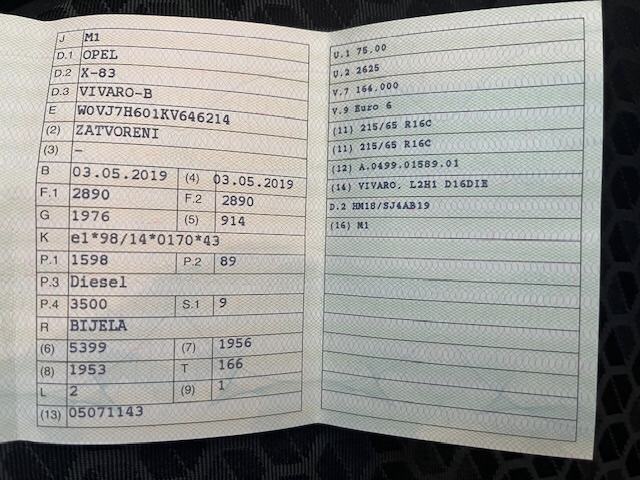 J M1
D.1 OPEL
D.2 X-83
D.3 VIVARO-B
E W0VJ7H601KV646214
(2) ZATVORENI
(3) –
B 03.05.2019 (4) 03.05.2019
F.1 2890 F.2 2890
G 1976 (5) 914
K e1*98/14*0170*43
P.1 1598 P.2 89
P.3 Diesel
P.4 3500 S.1 9
R BIJELA
(6) 5399 (7) 1956
(8) 1953 T 166
L 2 (9) 1
(13) 05071143
U.1 75.00
U.2 2625
V.7 164.000
V.9 Euro 6
(11) 215/65 R16C
(11) 215/65 R16C
(12) A.0499.01589.01
(14) VIVARO. L2H1 D16DIE
D.2 HM18/SJ4AB19
(16) M1